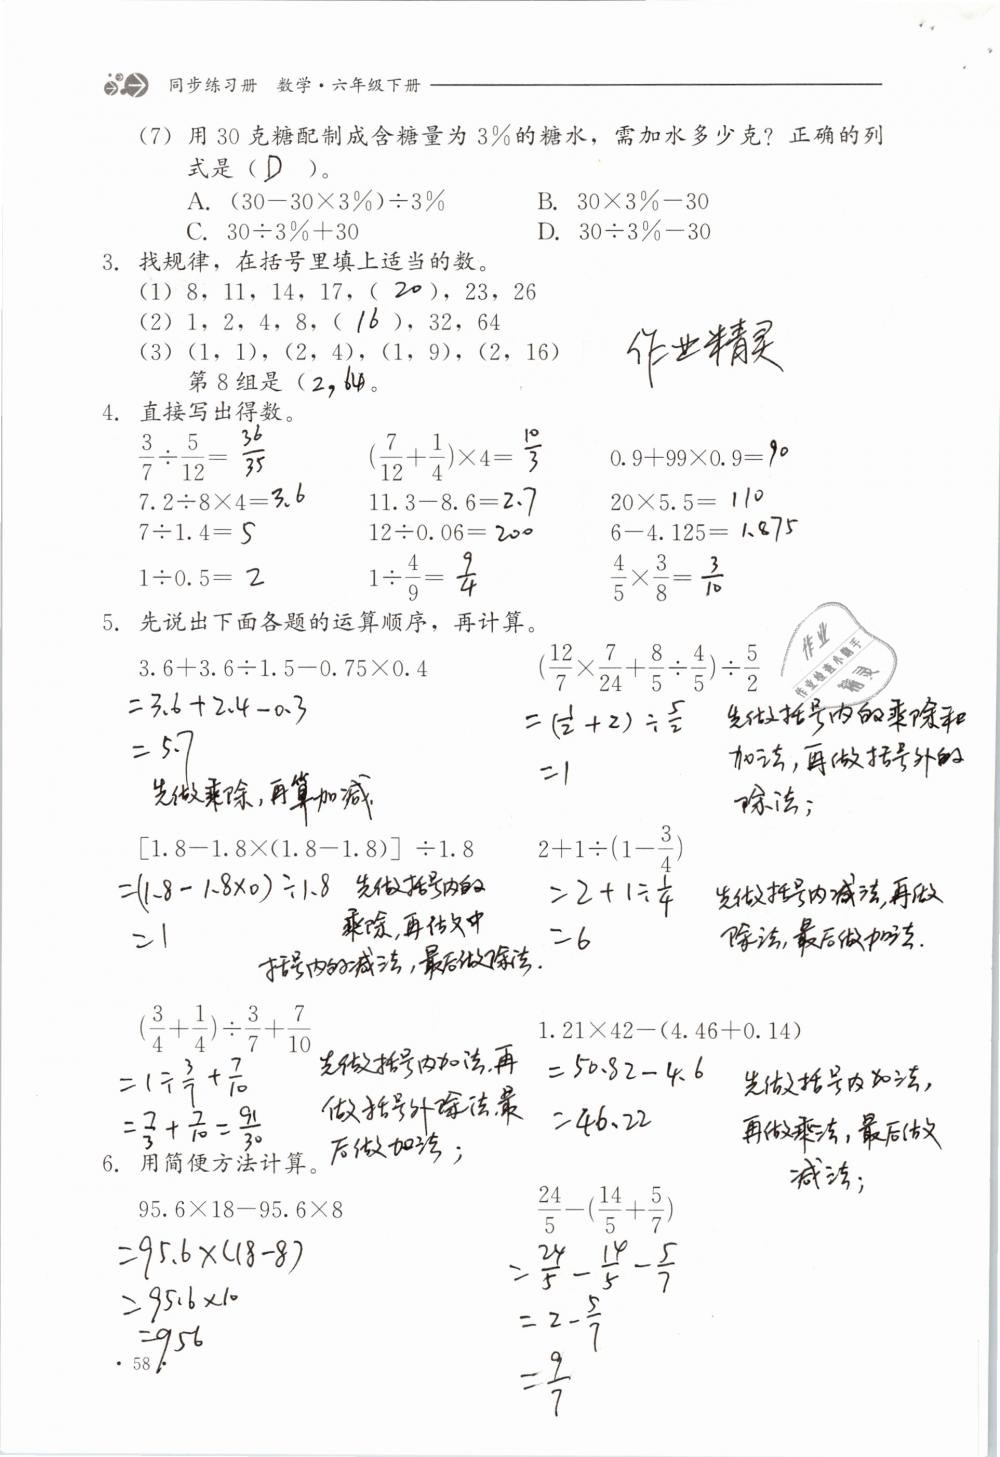 同步练习册 数学·六年级下册
(7) 用 30 克糖配制成含糖量为 3%的糖水，需加水多少克？正确的列
式是（ D ）。
A. (30－30×3%)÷3% B. 30×3%－30
C. 30÷3%＋30 D. 30÷3%－30
3. 找规律，在括号里填上适当的数。
(1) 8，11，14，17，( 20 )，23，26
(2) 1，2，4，8，( 16 )，32，64
(3) (1，1)，(2，4)，(1，9)，(2，16)
作业精灵
第 8 组是 (2, 64)。
4. 直接写出得数。
3/7÷5/12＝36/35 (7/12＋1/4)×4＝10/3 0.9＋99×0.9＝90
7.2÷8×4＝3.6 11.3－8.6＝2.7 20×5.5＝110
7÷1.4＝5 12÷0.06＝200 6－4.125＝1.875
1÷0.5＝2 1÷4/9＝9/4 4/5×3/8＝3/10
5. 先说出下面各题的运算顺序，再计算。
作业
作业检查小助手
精灵
3.6＋3.6÷1.5－0.75×0.4 (12/7×7/24＋8/5÷4/5)÷5/2
=3.6+2.4-0.3 =(1/2+2)÷5/2 先做括号内的乘除和
=5.7 =1 加法，再做括号外的
先做乘除，再算加减. 除法；
[1.8－1.8×(1.8－1.8)]÷1.8 2＋1÷(1－3/4)
=(1.8-1.8×0)÷1.8 先做括号内的 =2+1÷1/4 先做括号内减法，再做
=1 乘除，再做中 =6 除法，最后做加法.
括号内的减法，最后做除法.
(3/4＋1/4)÷3/7＋7/10 1.21×42－(4.46＋0.14)
=1÷3/7+7/10 先做括号内加法，再 =50.82-4.6 先做括号内加法，
=7/3+7/10=91/30 做括号外除法，最 =46.22 再做乘法，最后做
后做加法； 减法；
6. 用简便方法计算。
95.6×18－95.6×8 24/5－(14/5＋5/7)
=95.6×(18-8) =24/5-14/5-5/7
=95.6×10 =2-5/7
=956 =9/7
·58·